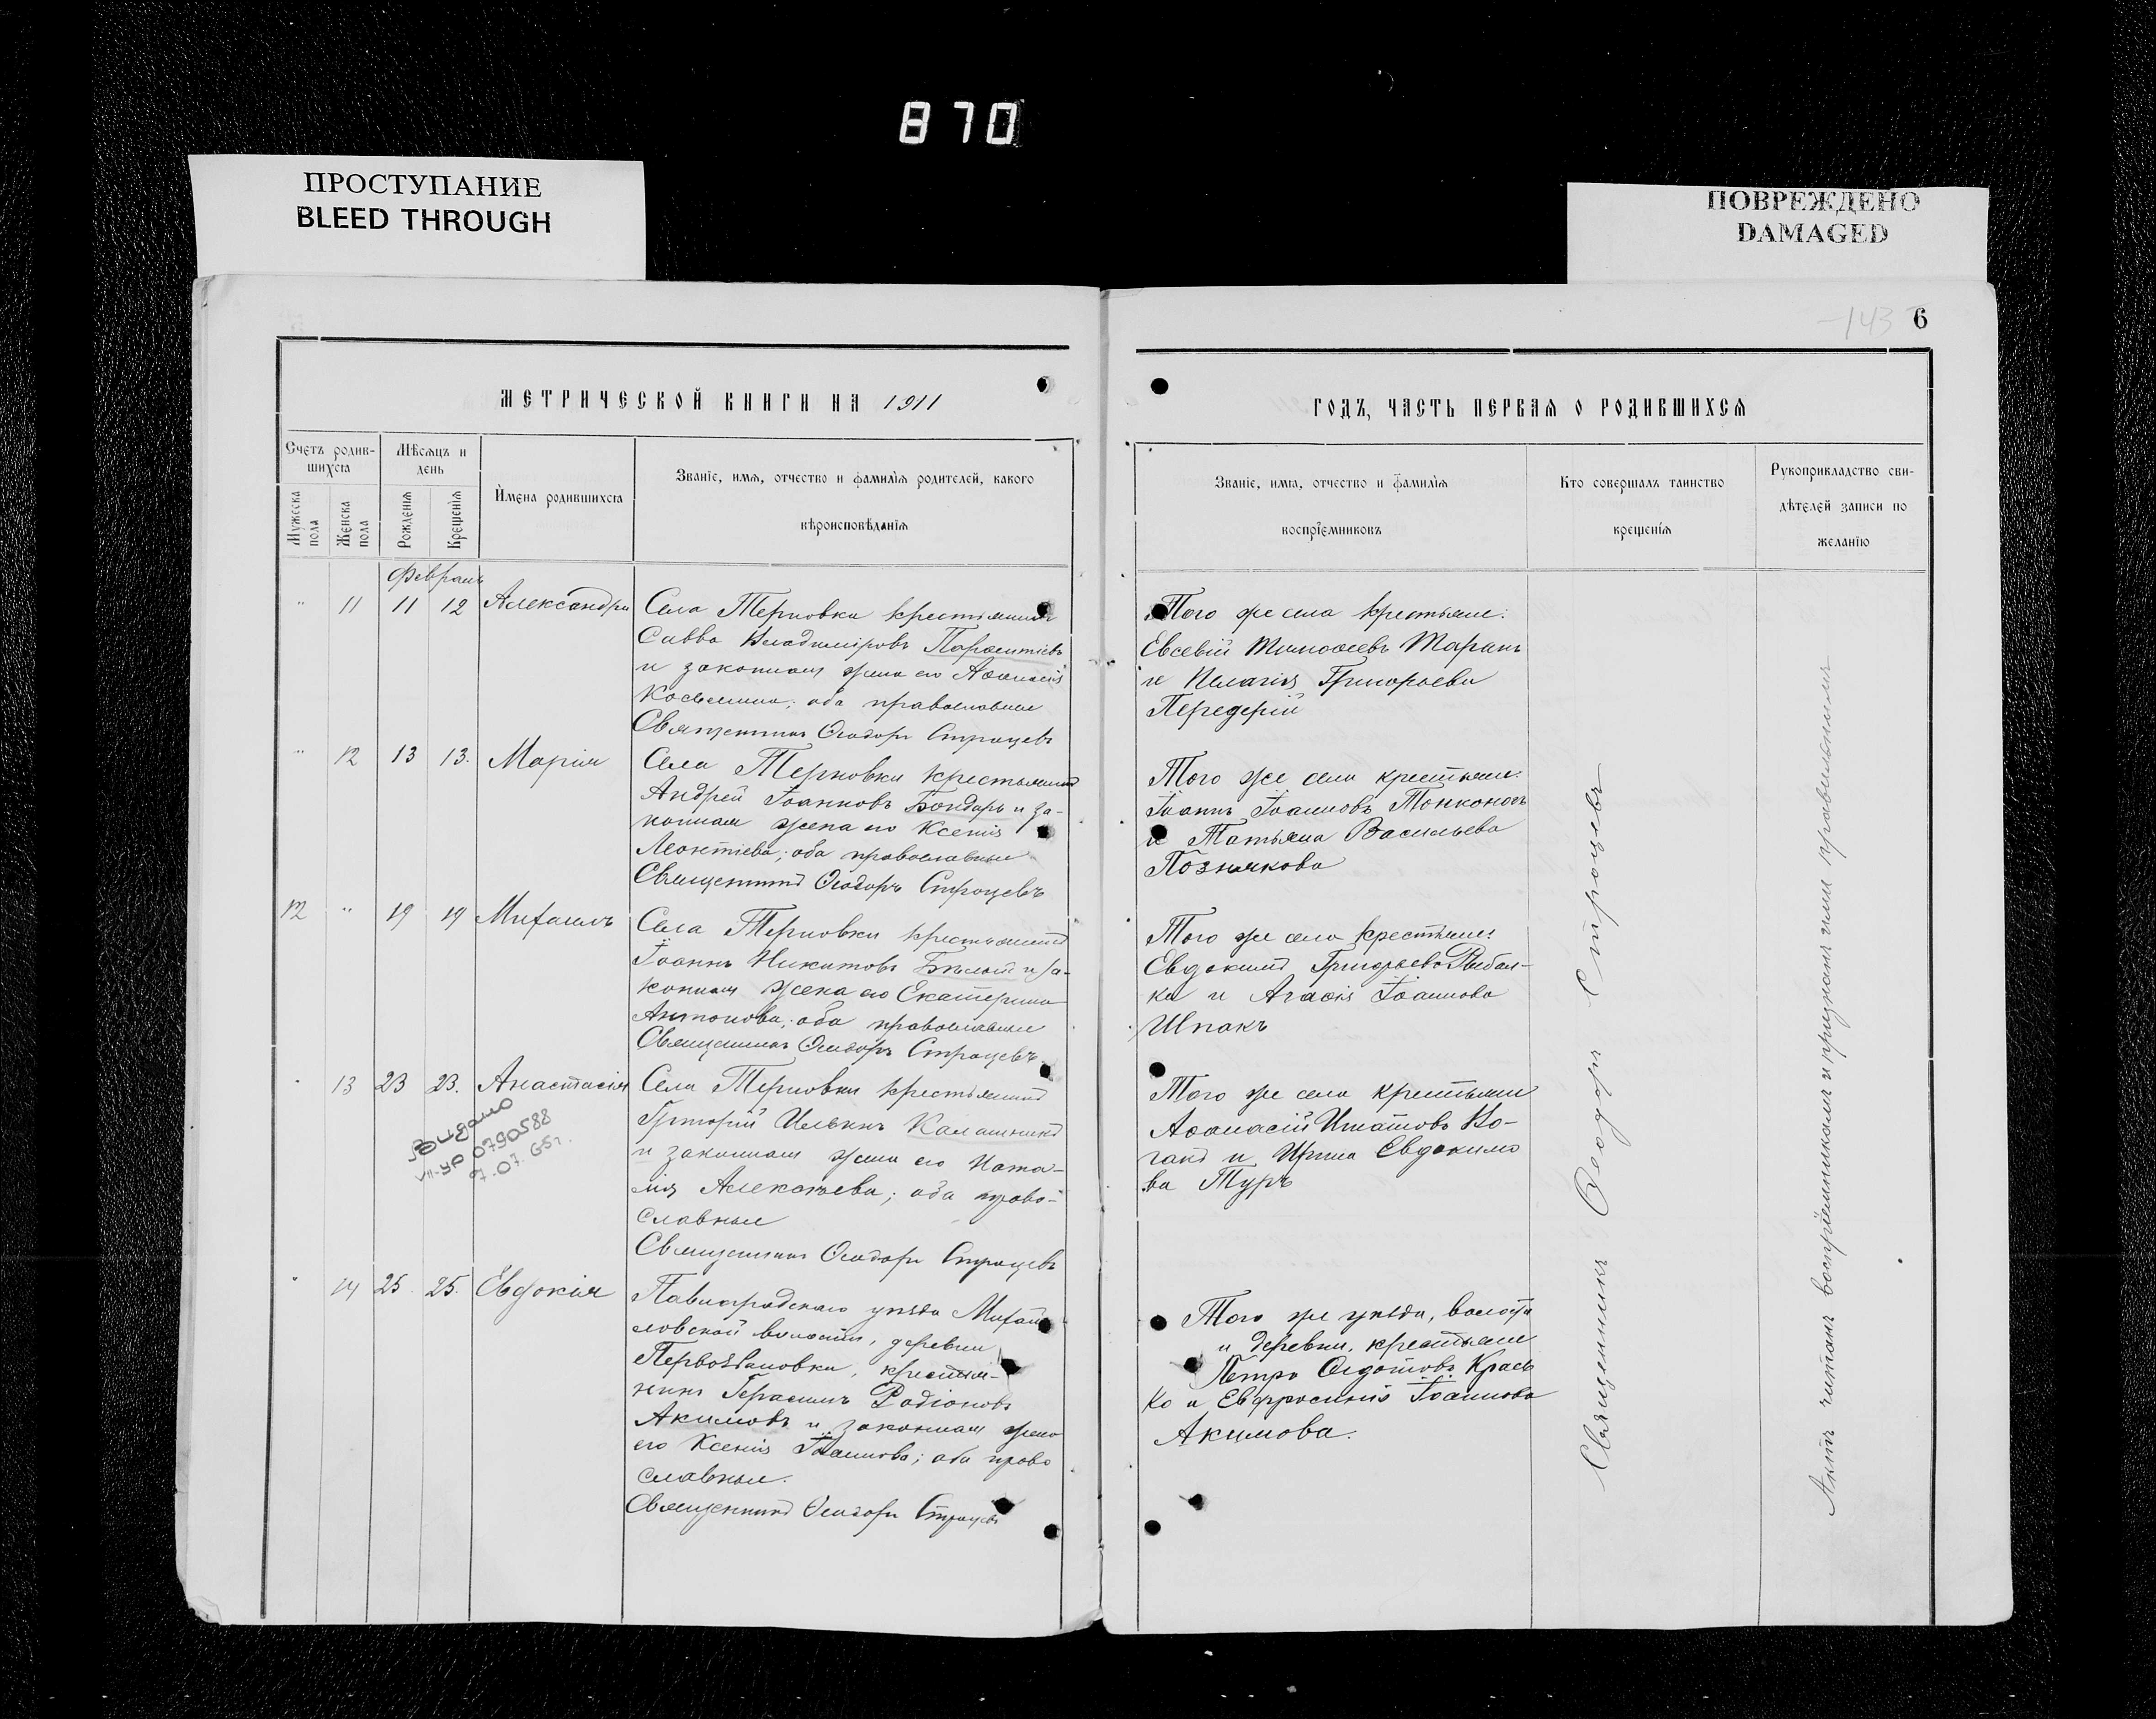 870
ПРОСТУПАНИЕ
BLEED THROUGH
ПОВРЕЖДЕНО
DAMAGED
143
6
МЕТРИЧЕСКОЙ КНИГИ НА 1911
Счетъ родив-
шихся
Мѣсяцъ и
день
Мужеска
пола
Женска
пола
Рожденія
Крещенія
Имена родившихся
Званіе, имя, отчество и фамилія родителей, какого
вѣроисповѣданія
Февраль
" 11 11 12 Александра
Села Терновки крестьянинъ
Савва Владиміровъ
и законная жена его Аѳанасія
Косьмина; оба православные
Священникъ Ѳеодоръ Строцевъ
" 12 13 13. Марія
Села Терновки крестьянинъ
Андрей Іоанновъ Бондарь и за-
конная жена его Ксенія
Леонтіева; оба православные
Священникъ Ѳеодоръ Строцевъ
12 " 19 19 Михаилъ
Села Терновки крестьянинъ
Іоаннъ Никитовъ Бѣлый и за-
конная жена его Екатерина
Антонова; оба православные
Священникъ Ѳеодоръ Строцевъ
" 13 23 23. Анастасія
Видано
VII-УР 0790588
7.07.65г.
Села Терновки крестьянинъ
Григорій Илькинъ Калашникъ
и законная жена его Ната-
лія Алексѣева; оба право-
славные
Священникъ Ѳеодоръ Строцевъ
" 14 25. 25. Евдокія
Павлоградскаго уѣзда Михай-
ловской волости, деревни
крестья-
нинъ Герасимъ Родіоновъ
Акимовъ и законная жена
его Ксенія Іоаннова; оба право
славные.
Священникъ Ѳеодоръ Строцевъ
ГОДЪ, ЧАСТЬ ПЕРВАЯ О РОДИВШИХСЯ
Званіе, имя, отчество и фамилія
воспріемниковъ
Кто совершалъ таинство
крещенія
Рукоприкладство сви-
дѣтелей записи по
желанію
Того же села крестьяне:
Евсевій Тимоѳеевъ Таранъ
и Пелагія Григорьева
Передерій
Того же села крестьяне:
Іоаннъ Іоанновъ Тонконогъ
и Татьяна Васильева
Познякова
Того же села крестьяне:
Евдокимъ Григорьевъ Рыбал-
ка и Агаѳія Іоаннова
Шпакъ
Того же села крестьяне
Аѳанасій Игнатовъ Ко-
ганъ и Ирина Евдокимо
ва Туръ
Того же уѣзда, волости
и деревни, крестьяне
Петръ Ѳедотовъ Крась
ко и Евфросинія Іоаннова
Акимова.
Священникъ Ѳеодоръ Строцевъ
Актъ читанъ воспріемникамъ и признанъ ими правильнымъ